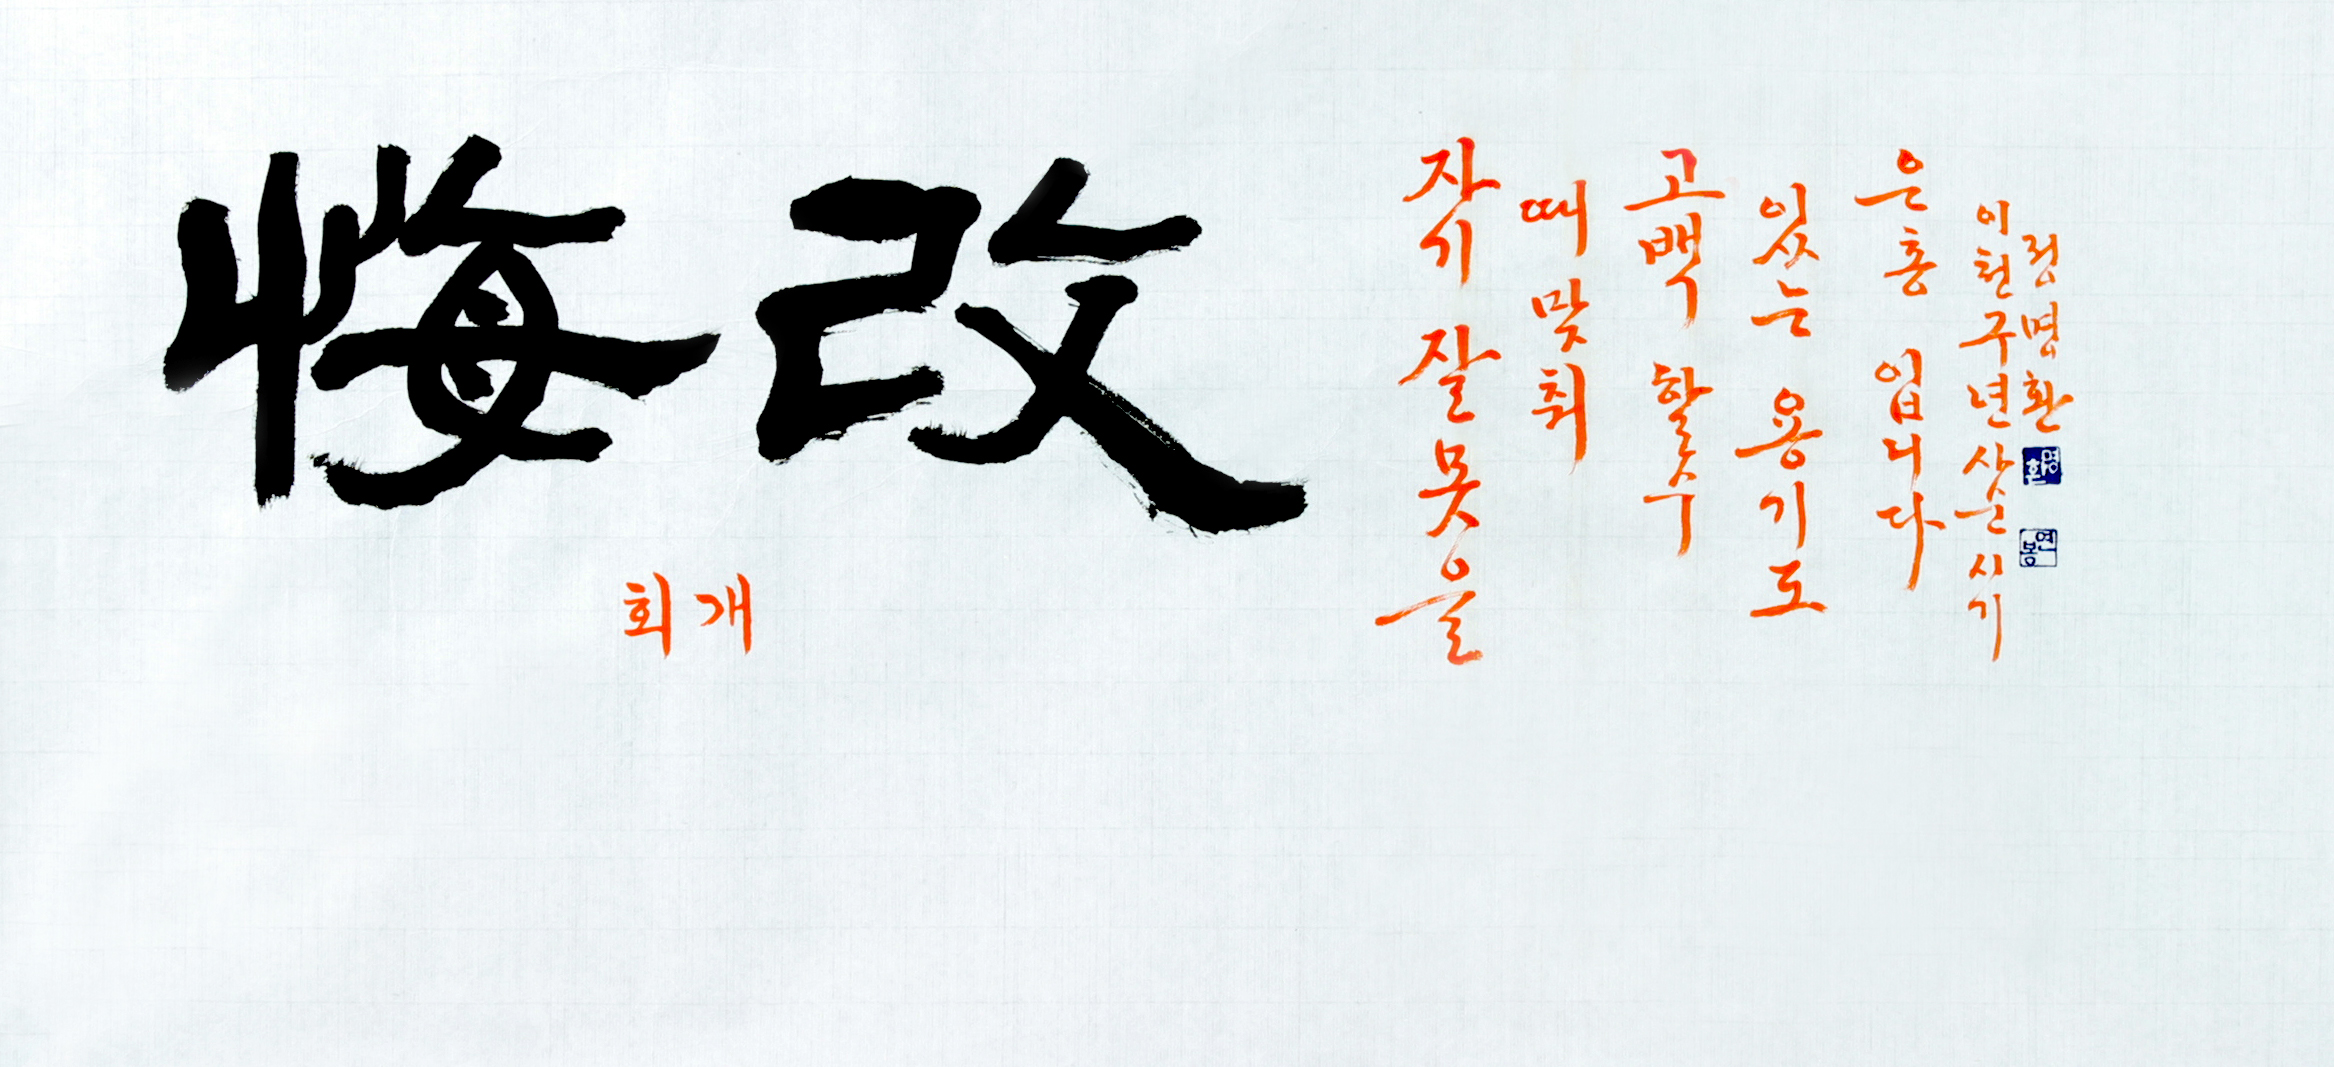 悔改
회개
자기 잘못을
때 맞춰
고백 할 수
있는 용기도
은총 입니다
이천구년 상순 시기
정명환
명환
연몽